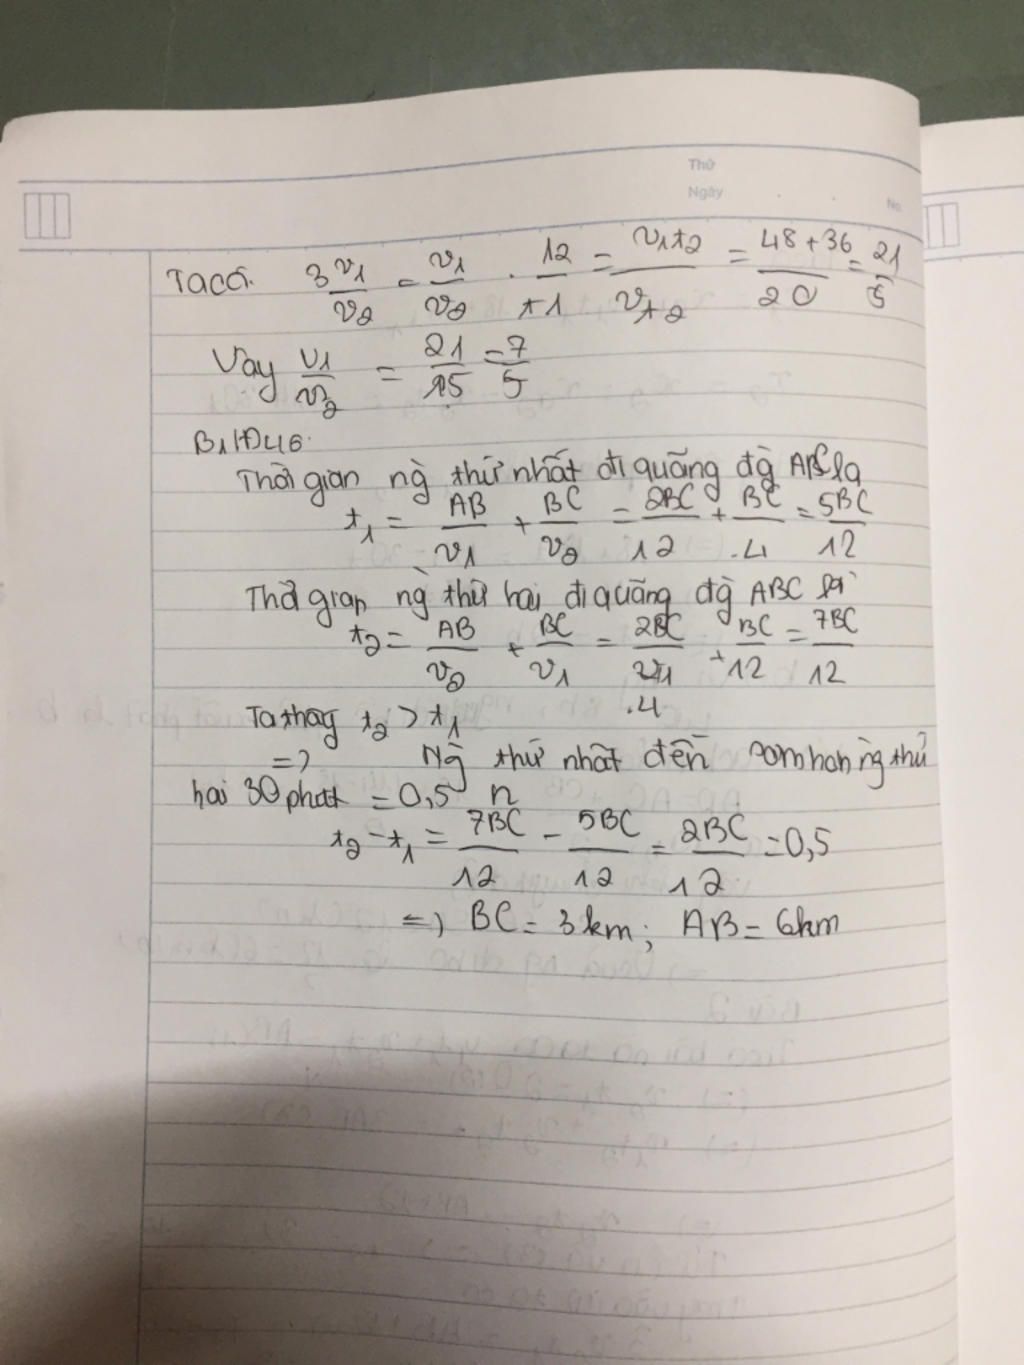 Thứ
Ngày
No.
Ta có: 3 v1/v2 = v1/v2 . t2/t1 = v1t2/v t2 = 48+36/20 = 21/5
Vay v1/v2 = 21/15 = 7/5
Thời gian ng̀ thứ nhất đi quãng đg̀ ABC là
t1 = AB/v1 + BC/v2 = 2BC/12 + BC/4 = 5BC/12
Thơ gian ng̀ thứ hai đi quãng đg̀ ABC là
t2 = AB/v2 + BC/v1 = 2BC/4 + BC/12 = 7BC/12
Ta thay t2 > t1
=> Ng̀ thứ nhất đến som hon ng̀ thứ
hai 30 phut = 0,5 h
t2 - t1 = 7BC/12 - 5BC/12 = 2BC/12 = 0,5
=> BC = 3km; AB = 6km